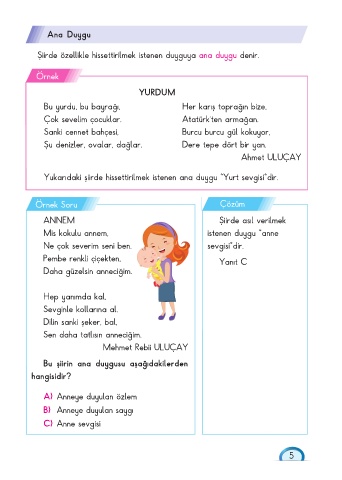 Ana Duygu
Şiirde özellikle hissettirilmek istenen duyguya ana duygu denir.
Örnek
YURDUM
Bu yurdu, bu bayrağı,
Çok sevelim çocuklar.
Sanki cennet bahçesi,
Şu denizler, ovalar, dağlar.
Her karış toprağın bize,
Atatürk'ten armağan.
Burcu burcu gül kokuyor,
Dere tepe dört bir yan.
Ahmet ULUÇAY
Yukarıdaki şiirde hissettirilmek istenen ana duygu "Yurt sevgisi"dir.
Örnek Soru
ANNEM
Mis kokulu annem,
Ne çok severim seni ben.
Pembe renkli çiçekten,
Daha güzelsin anneciğim.
Hep yanımda kal,
Sevginle kollarına al.
Dilin sanki şeker, bal,
Sen daha tatlısın anneciğim.
Mehmet Rebii ULUÇAY
Bu şiirin ana duygusu aşağıdakilerden
hangisidir?
A) Anneye duyulan özlem
B) Anneye duyulan saygı
C) Anne sevgisi
Çözüm
Şiirde asıl verilmek
istenen duygu "anne
sevgisi"dir.
Yanıt C
5